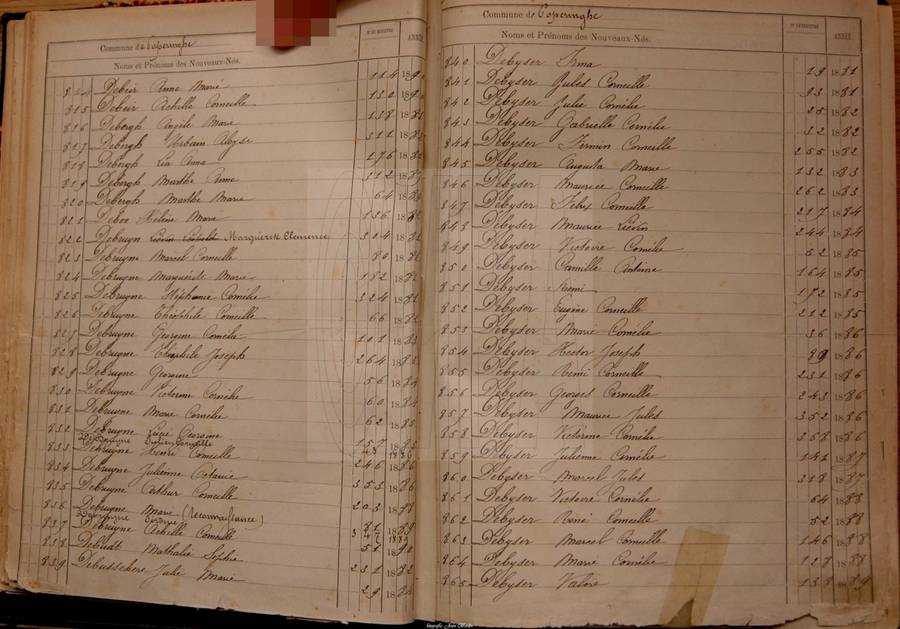 Commune de Poperinghe
Noms et Prénoms des Nouveaux-Nés.
ANNÉE
814 Debeir Anne Marie 114
815 Debeir Achille Corneille 132
816 Debergh Angèle Marie 138
817 Debergh Urbain Aloyse 311
818 Debergh Lia Anna 176
819 Debergh Marthe Anne 112
820 Debergh Marthe Marie 64
821 Deboo Hélène Marie 136
822 Debruyn Marguerite Clemence 304
823 Debruyne Marcel Corneille 80
824 Debruyne Marguerite Marie 182
825 Debruyne Stéphanie Cornélie 324
826 Debruyne Théophile Corneille 66
827 Debruyne Georgine Cornélie 101
828 Debruyne Théophile Joseph 264
829 Debruyne Germaine 56
830 Debruyne Victorine Cornélie 60
831 Debruyne Marie Cornélie 62
832 Debruyne Lucie Germaine 157
Debruyne Corneille
833 Debruyne Henri Corneille 246
834 Debruyne Julienne Octavie 353
835 Debruyne Arthur Corneille 203
836 Debruyne Marie (Reconnaissance)
Debruyne
837 Debruyne Achille Corneille 51
838 Debudt Nathalie Sophie 231
839 Debusschere Julie Marie 29
Commune de Poperinghe
Noms et Prénoms des Nouveaux-Nés.
ANNÉE
840 Debyser Irma 19 1881
841 Debyser Jules Corneille 93 1881
842 Debyser Julie Cornélie 25 1882
843 Debyser Gabrielle Cornélie 32 1882
844 Debyser Firmin Corneille 255 1882
845 Debyser Augusta Marie 132 1883
846 Debyser Maurice Corneille 262 1883
847 Debyser Felix Corneille 217 1884
848 Debyser Maurice Liévin 244 1884
849 Debyser Victoire Cornélie 52 1885
850 Debyser Camille Antoine 164 1885
851 Debyser Remi 172 1885
852 Debyser Eugène Corneille 212 1885
853 Debyser Marie Cornélie 36 1886
854 Debyser Hector Joseph 89 1886
855 Debyser Remi Corneille 231 1886
856 Debyser Georges Corneille 243 1886
857 Debyser Maurice Jules 352 1886
858 Debyser Victorine Cornélie 358 1886
859 Debyser Julienne Cornélie 141 1887
860 Debyser Marcel Jules 218 1887
861 Debyser Victoire Cornélie 64 1888
862 Debyser René Corneille 52 1888
863 Debyser Marcel Corneille 146 1888
864 Debyser Marie Cornélie 128 1888
865 Debyser Valère 138 1889